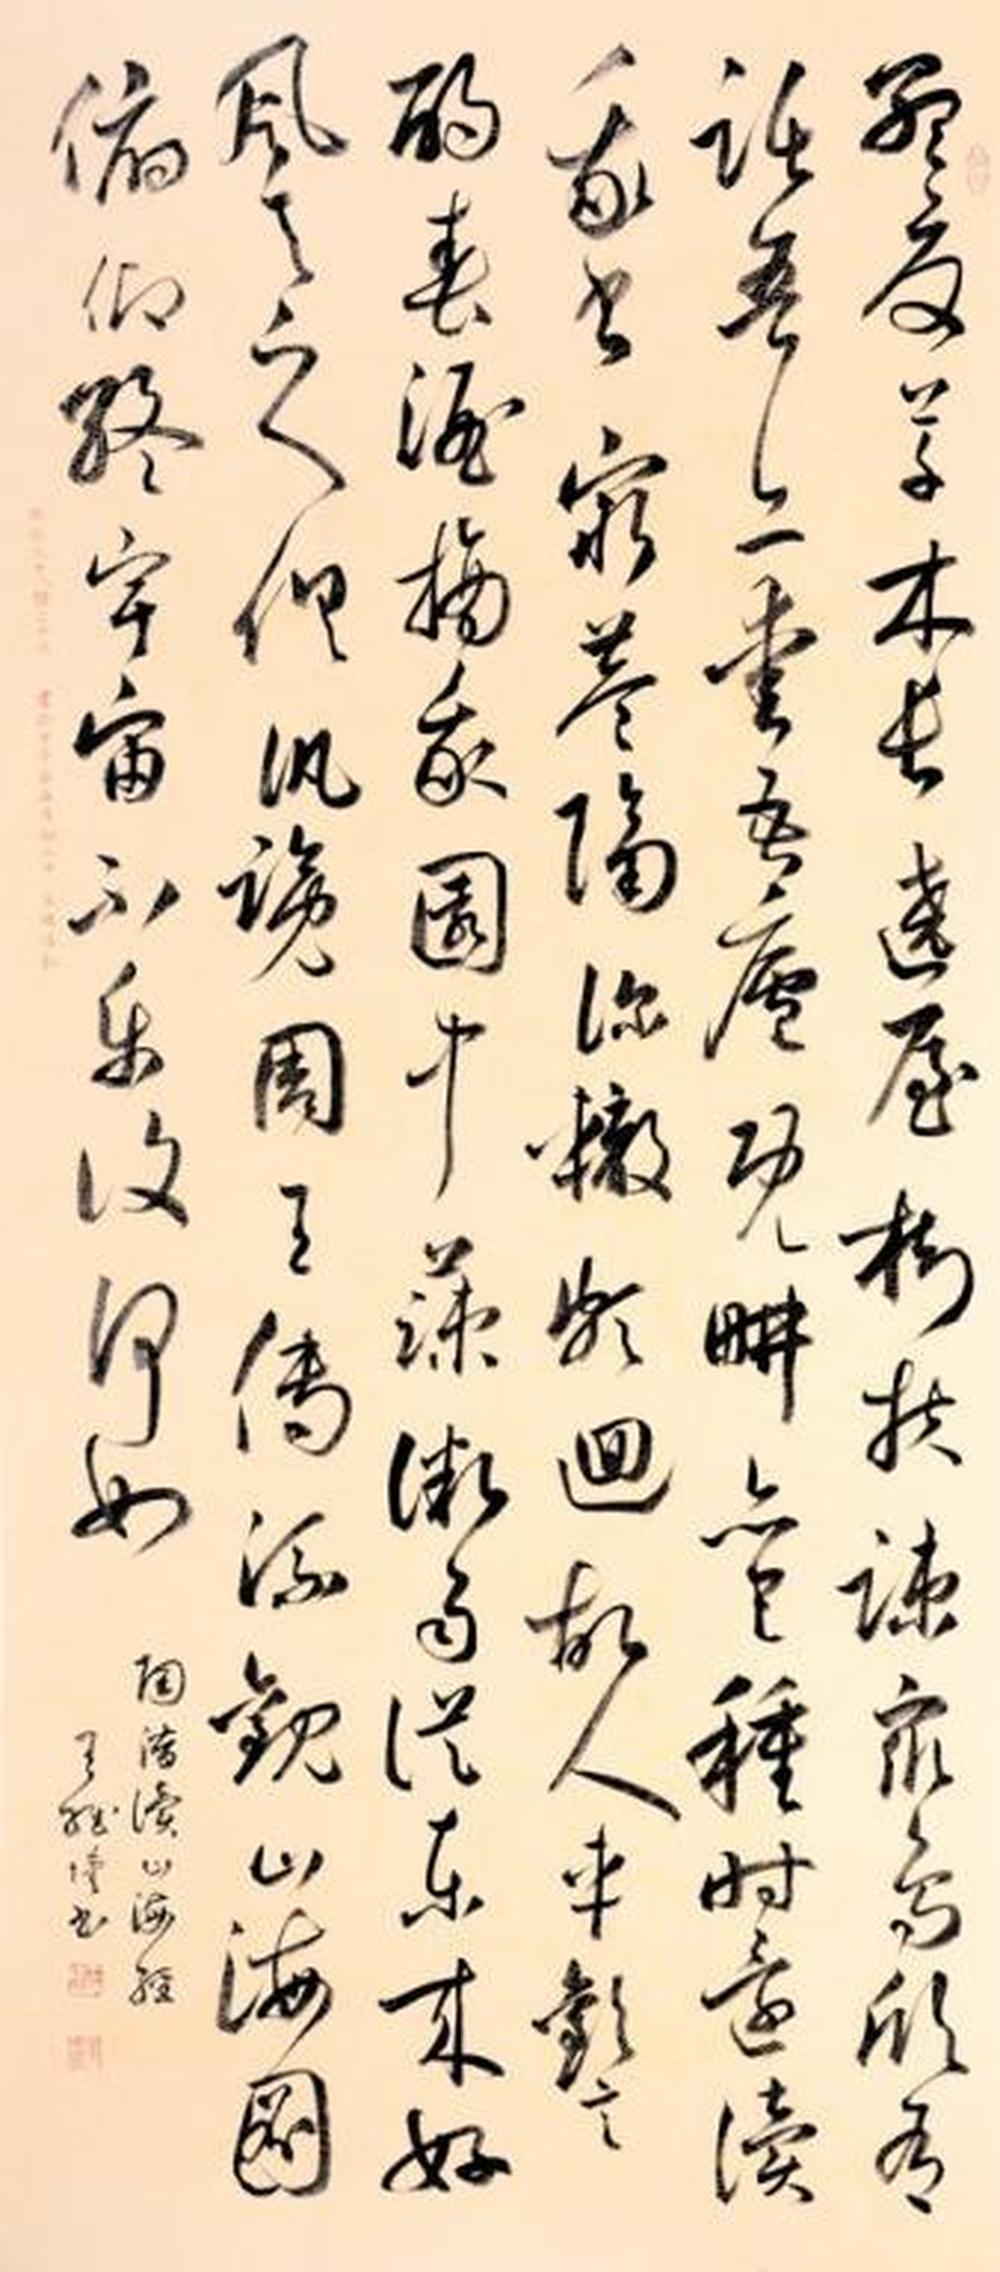 孟夏草木長遶屋樹扶疎眾鳥欣有
託吾亦愛吾廬既畊亦已種時還讀
我書窮巷隔深轍頗迴故人車歡言
酌春酒摘我園中蔬微雨從東來好
風與之俱汎覽周王傳流觀山海圖
俯仰終宇宙不樂復何如
陶潛讀山海經
書